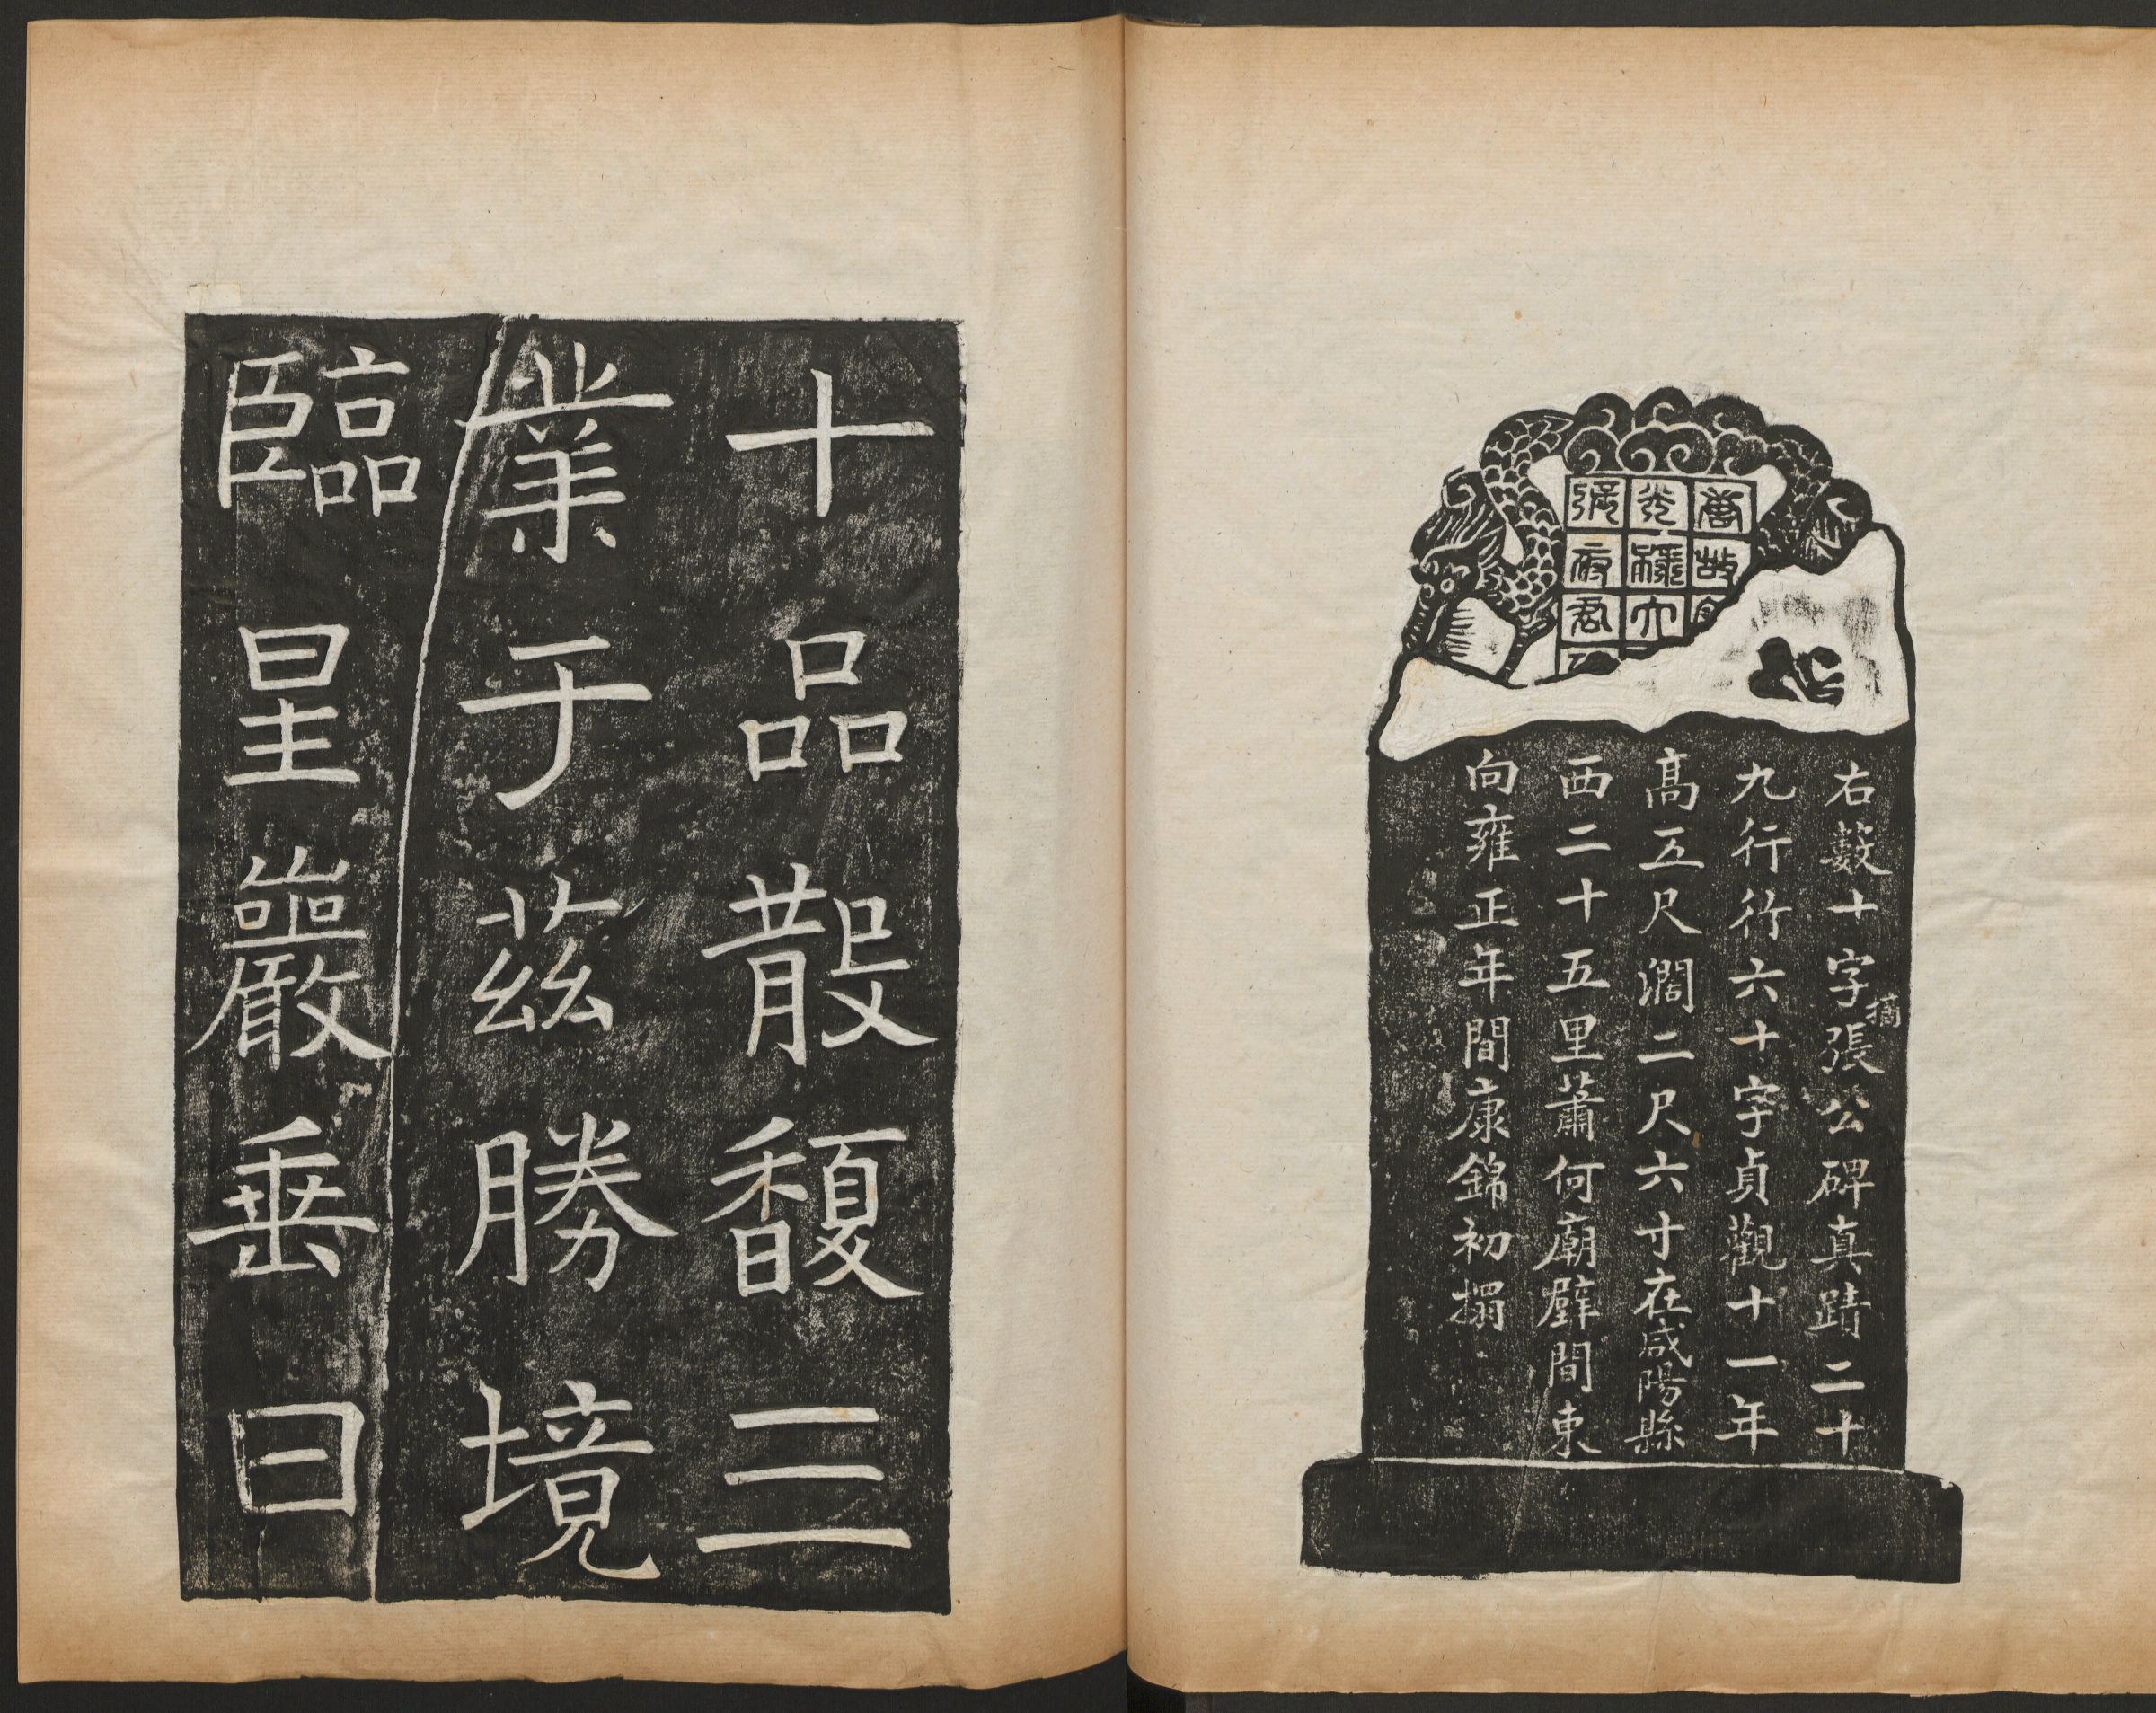 唐故
光祿大
張府君
右藪十字摘張公碑真蹟二十
九行行六十字貞觀十一年
高五尺濶二尺六寸在咸陽縣
西二十五里蕭何廟壁間東
向雍正年間康錦初搨
十品散馥三
業于茲勝境
臨星巖垂曰